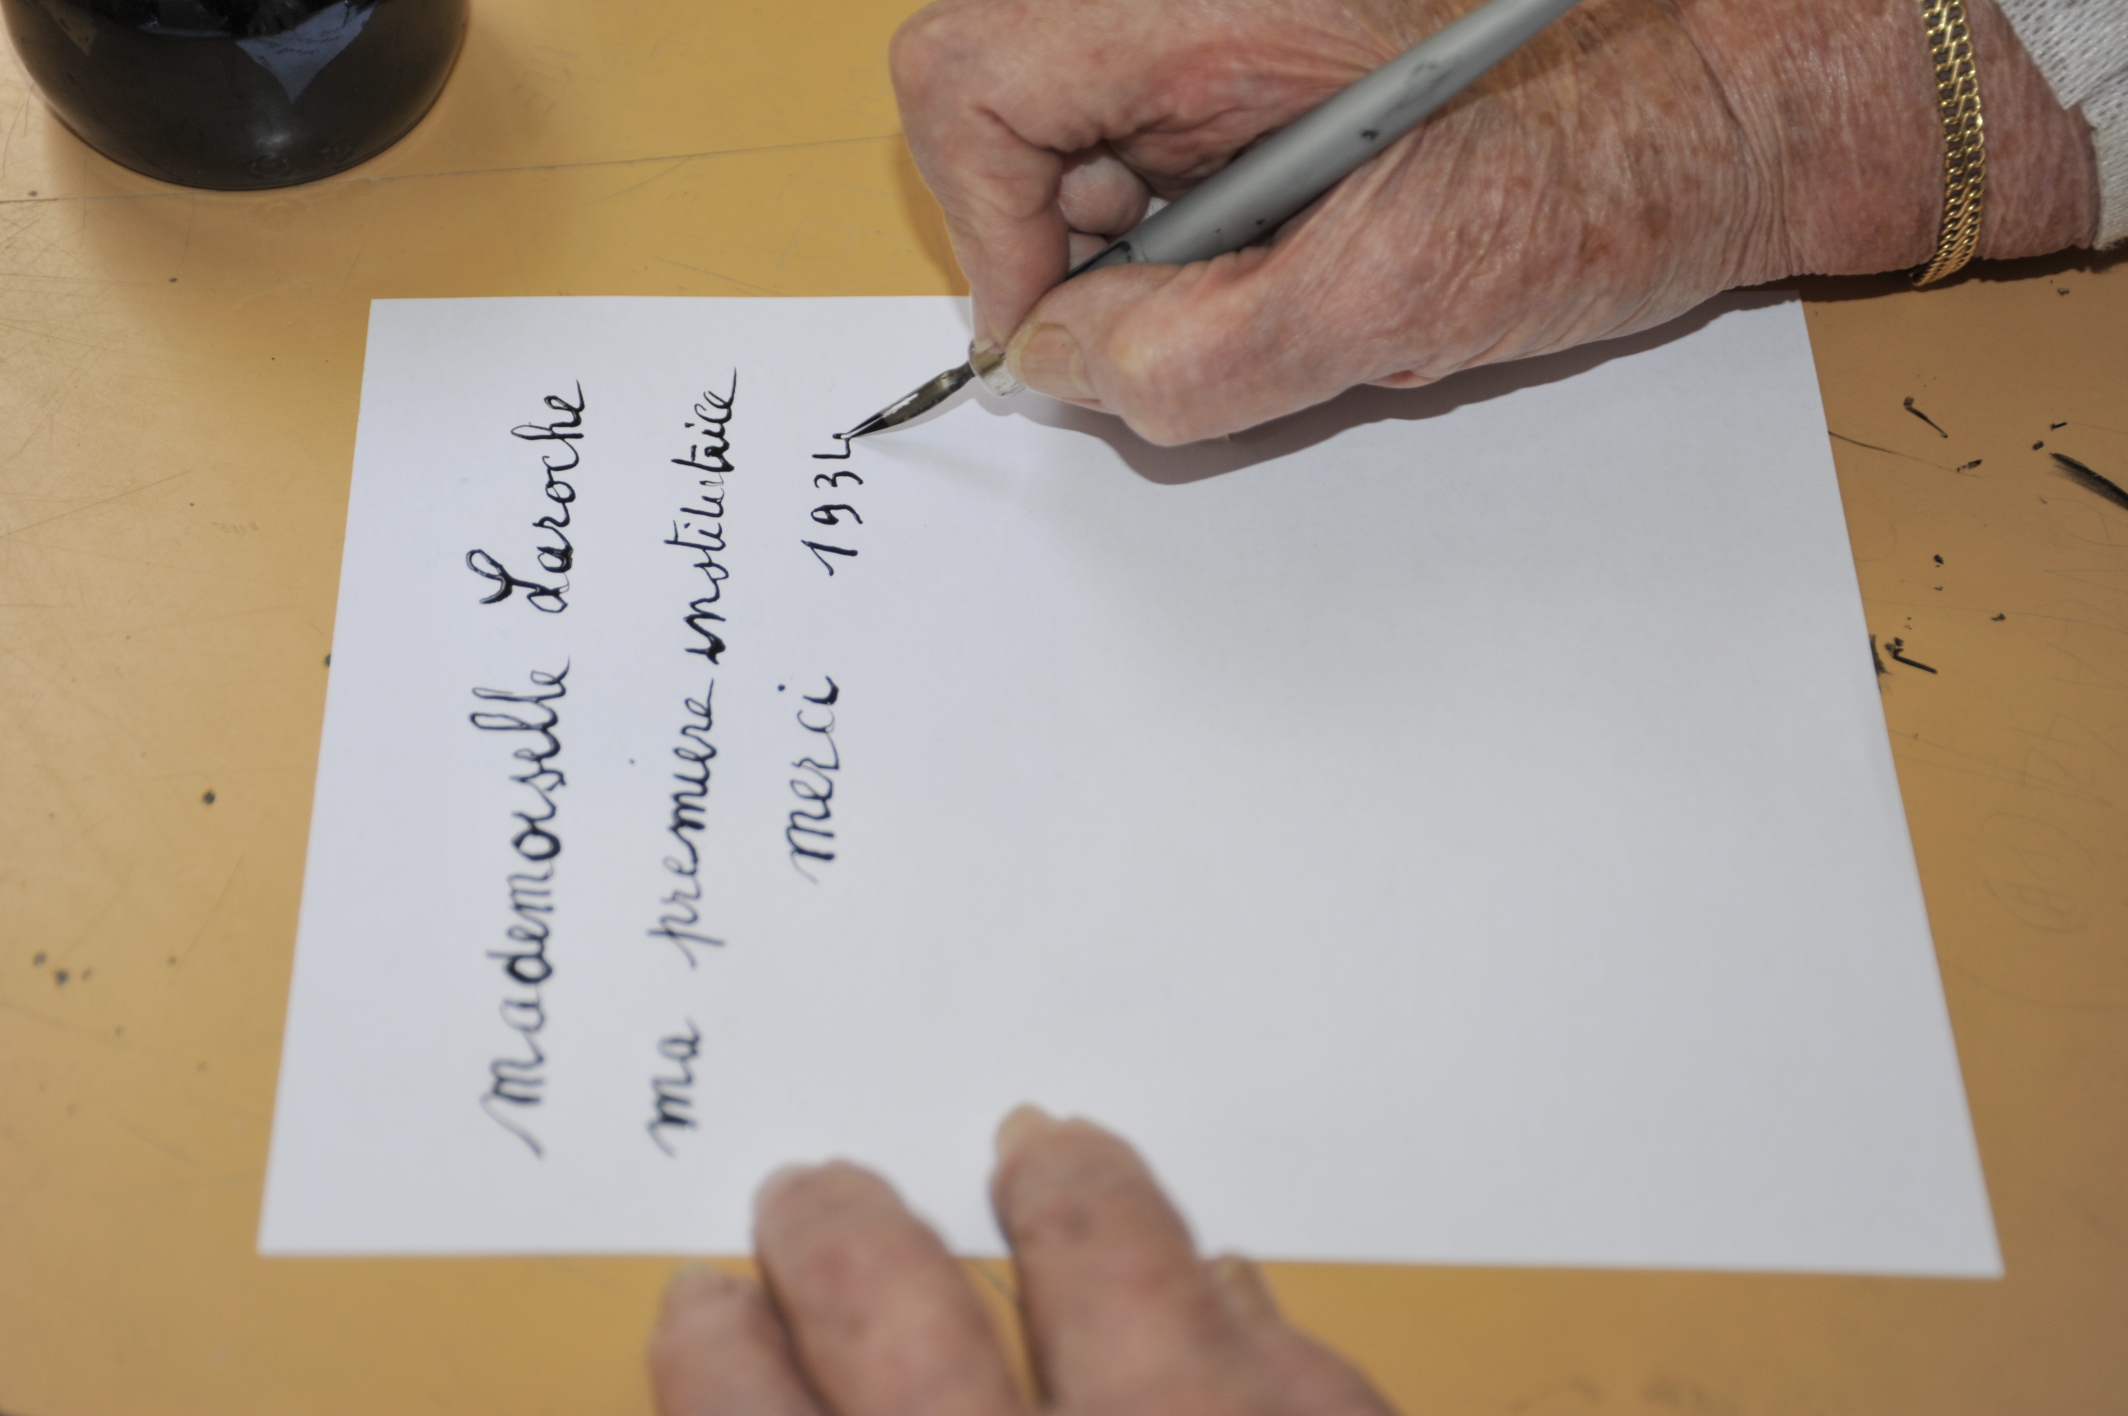 mademoiselle Laroche
ma premiere institutrice
merci 1934